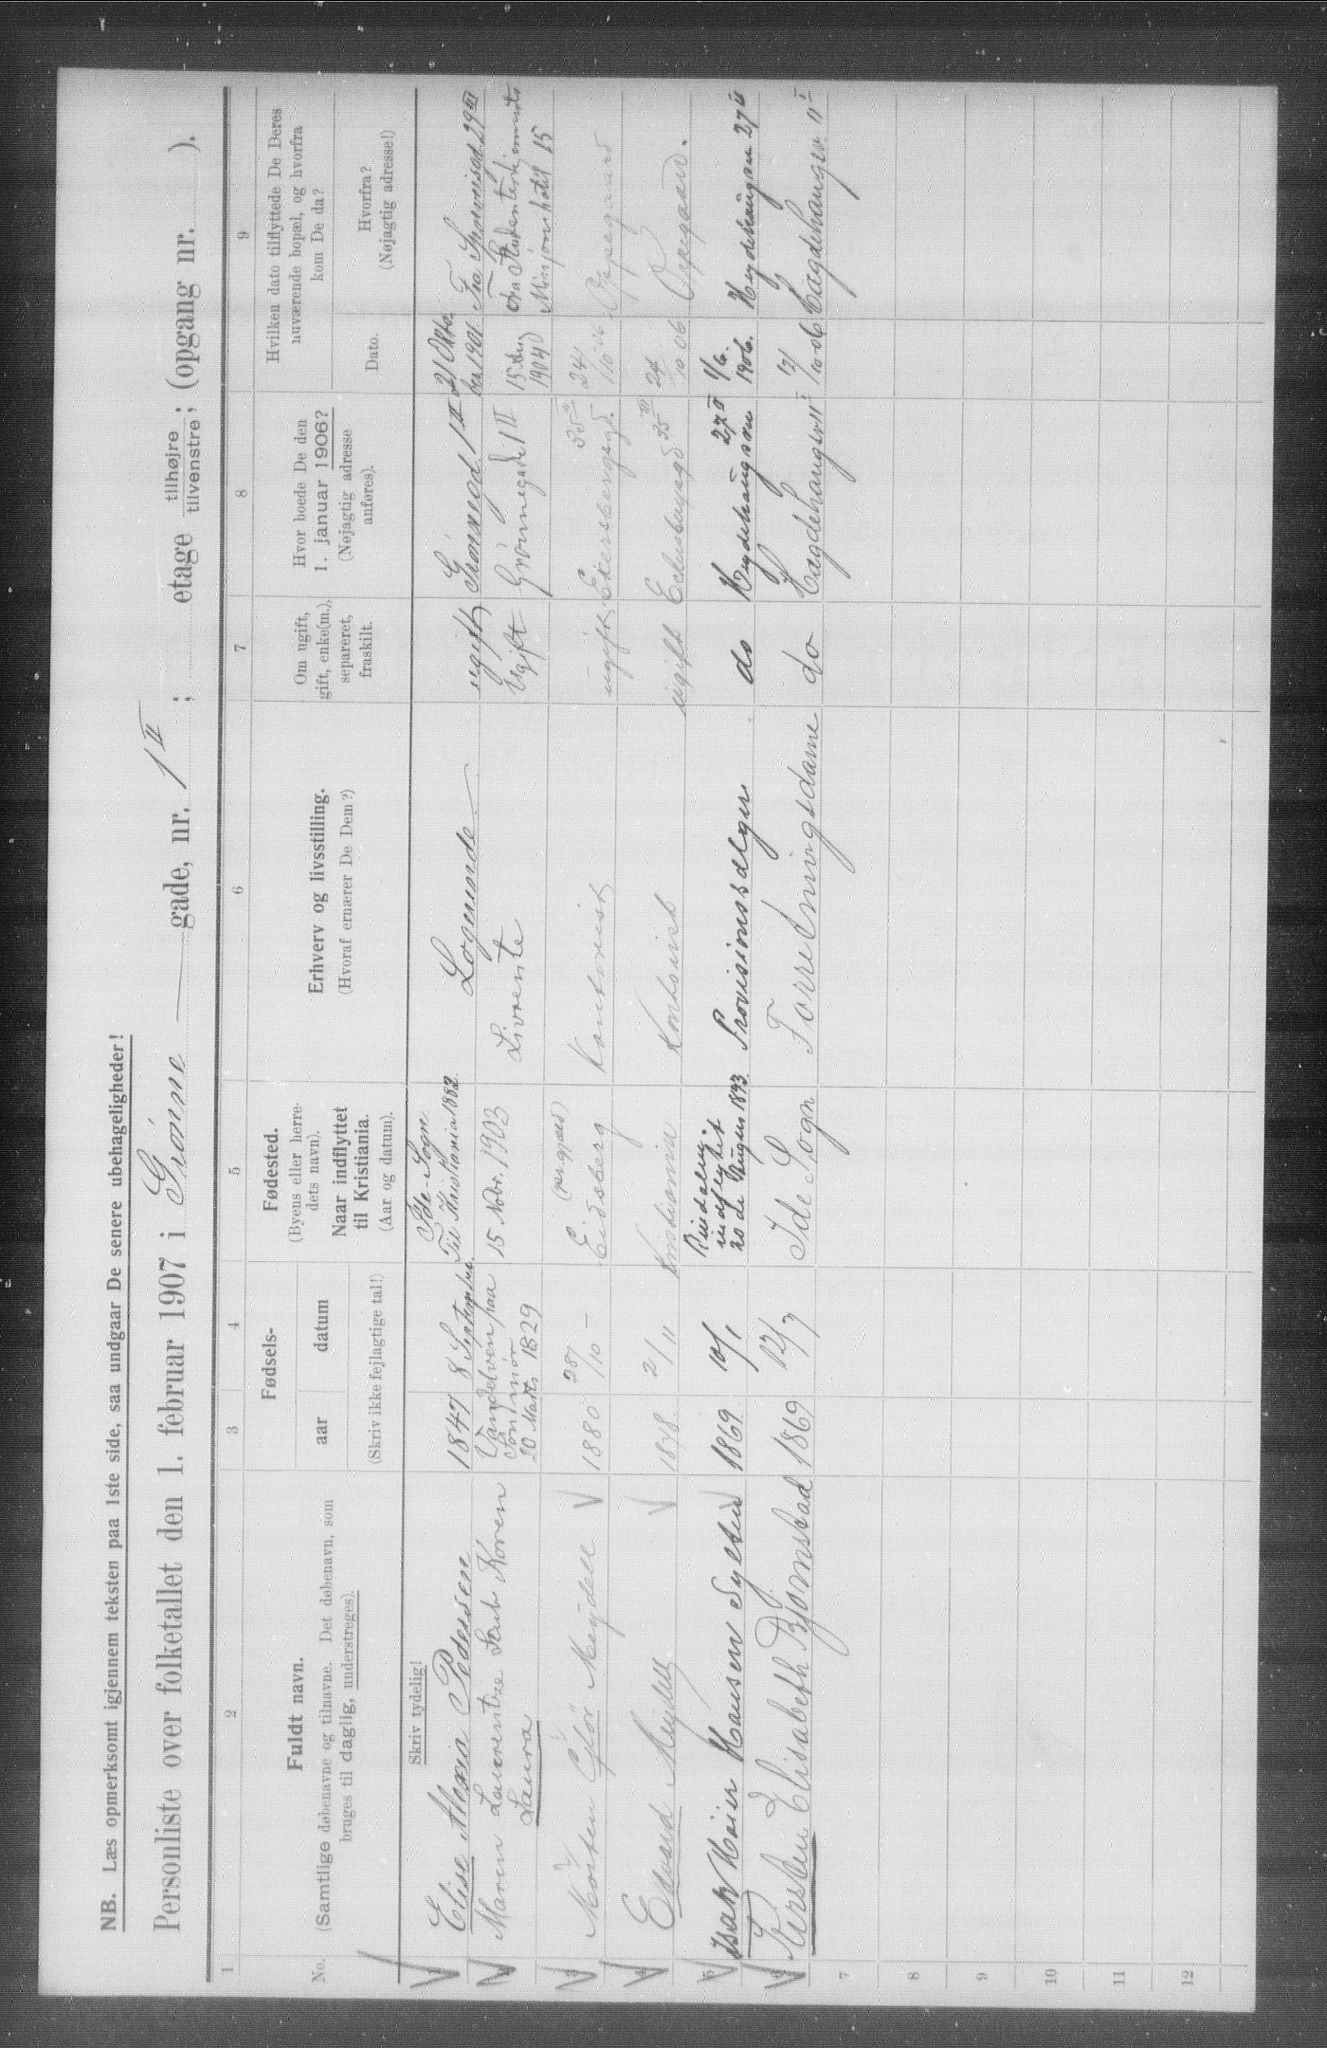 NB. Læs opmerksomt igjennem teksten paa 1ste side, saa undgaar De senere ubehageligheder!
Personliste over folketallet den 1. februar 1907 i Grönne gade, nr. 1 II; etage tilhøjre tilvenstre; (opgang nr. ).
1 2 3 4 5 6 7 8 9
No.
Fuldt navn.
(Samtlige døbenavne og tilnavne. Det døbenavn, som
bruges til daglig, understreges).
Fødsels-
aar datum
(Skriv ikke fejlagtige tal!)
Fødested.
(Byens eller herre-
dets navn).
Naar indflyttet
til Kristiania.
(Aar og datum).
Erhverv og livsstilling.
(Hvoraf ernærer De Dem?)
Om ugift,
gift, enke(m.),
separeret,
fraskilt.
Hvor boede De den
1. januar 1906?
(Nøjagtig adresse
anføres).
Hvilken dato tilflyttede De Deres
nuværende bopæl, og hvorfra
kom De da?
Dato.
Hvorfra?
(Nøjagtig adresse!)
Skriv tydelig!
1 Elise Alexia Pedersen 1847 8 September Ide-Sogn Til Kristiania 1882 Logerende ugift Grönnegd. 1 II 21 Oktober 1901 Fra 29 III
2 Maren Laurentze Koren Laura Vandelven paa Söndmör 20 Marts 1829 15 Nobr. 1903 Livrente Ugift Grönnegade 1 II 15 1904 Fra Studenterhjemmets Misjonshotel 15
3 Morten Meydell 1880 28/10 Eidsberg Kontorist ugift Eilersbergsgd. 35 III 24/10 06 Oppegaard
4 Edvard Meidell 1878 2/11 Kristiania Kontorist ugift 35 III 24/10 06 Oppegaard.
5 Isak Höier Hansen Sylten 1869 10/1 indflyttet 20de August 1893 Provisionssælger do Hegdehaugsvn 27 II 1/6. 1906. Hegdehaugsvn 27 II
6 Kirsten Elisabeth Bjørnstad 1869 12/7 Ide Sogn Forretningsdame do Hægdehaugsv. 11 I 12/10 06 Hægdehaugsv. 11 I
7
8
9
10
11
12